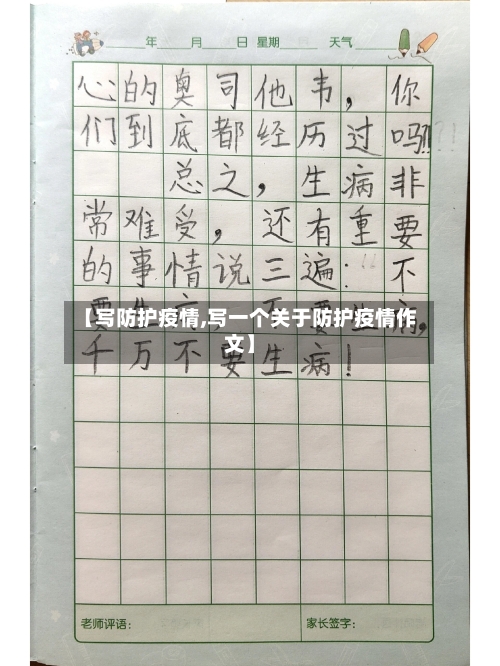 年 月 日 星期 天气
心的奥司他韦,你
们到底都经历过吗?!!
总之,生病非
常难受,还有重要
的事情说三遍:不
【写防护疫情,写一个关于防护疫情作
文】
千万不要生病!
老师评语: 家长签字: